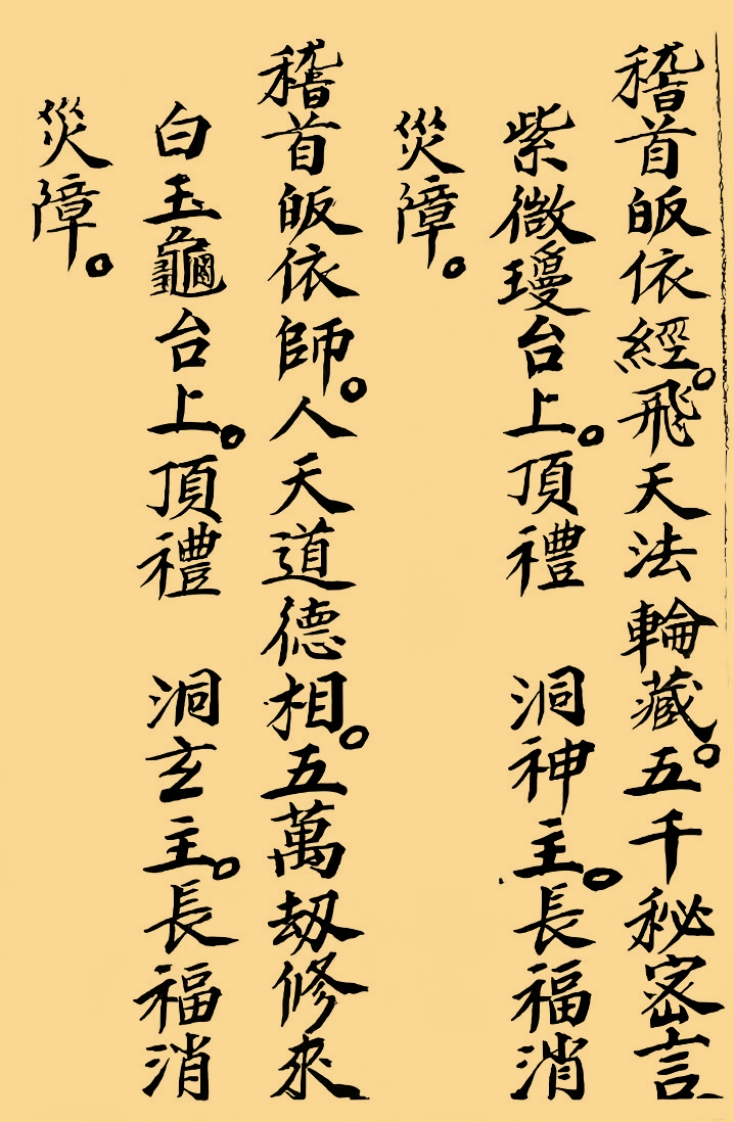 稽首皈依經。飛天法輪藏。五千秘密言
紫微瓊台上。頂禮　洞神主。長福消
災障。
稽首皈依師。人天道德相。五萬劫修來
白玉龜台上。頂禮　洞玄主。長福消
災障。